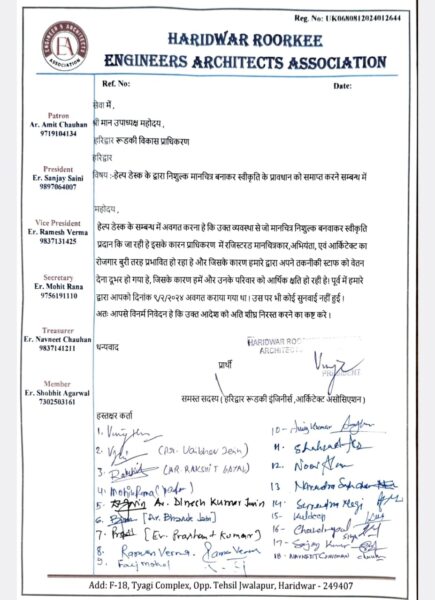 Reg. No: UK0680812024012644
HARIDWAR ROORKEE
ENGINEERS ARCHITECTS ASSOCIATION
ENGINEER'S & ARCHITECT'S
EA
ASSOCIATION
Ref. No:
Date:
Patron
Ar. Amit Chauhan
9719104134
President
Er. Sanjay Saini
9897064007
Vice President
Er. Ramesh Verma
9837131425
Secretary
Er. Mohit Rana
9756191110
Treasurer
Er. Navneet Chauhan
9837141211
Member
Er. Shobhit Agarwal
7302503161
सेवा में ,
श्री मान उपाध्यक्ष महोदय ,
हरिद्वार रूडकी विकास प्राधिकरण
हरिद्वार
विषय :- हेल्प डेस्क के द्वारा निशुल्क मानचित्र बनाकर स्वीकृति के प्रावधान को समाप्त करने सम्बन्ध में
महोदय ,
हेल्प डेस्क के सम्बन्ध में अवगत करना है कि उक्त व्यवस्था से जो मानचित्र निशुल्क बनवाकर स्वीकृति
प्रदान कि जा रही है इसके कारन प्राधिकरण में रजिस्टरड मानचित्रकार,अभियंता, एवं आर्किटेक्ट का
रोजगार बुरी तरह प्रभावित हो रहा है और जिसके कारण हमारे द्वारा अपने तकनीकी स्टाफ को वेतन
देना दूभर हो गया है, जिसके कारण हमें और उनके परिवार को आर्थिक क्षति हो रही है। पूर्व में हमारे
द्वारा आपको दिनांक ९/२/२०२४ अवगत कराया गया था। उस पर भी कोई सुनवाई नहीं हुई।
अतः आपसे विनर्म निवेदन है कि उक्त आदेश को अति शीघ्र निरस्त करने का कष्ट करे।
धन्यवाद
HARIDWAR ROOR
ARCHITECTS
प्रार्थी
PRESIDENT
समस्त सदस्य ( हरिद्वार रूडकी इंजिनीर्स ,आर्किटेक्ट असोसिएशन)
हस्ताक्षर कर्ता
1.
2. (Ar. Vaibhav Jain)
3. Rakshit (AR RAKSHIT GAYAL)
4.
5. Ar. Dinesh Kumar Jain
6.
7. (Er. Prashant Kumar)
8. Ramesh Verma
9.
10- Anuj Kumar
11.
12.
13 Narendra
14- Surendra Negi
15- Kuldeep
16- Chandrapal
17- Sanjay Kumar
18 NAVNEET CHAUHAN
Add: F-18, Tyagi Complex, Opp. Tehsil Jwalapur, Haridwar - 249407